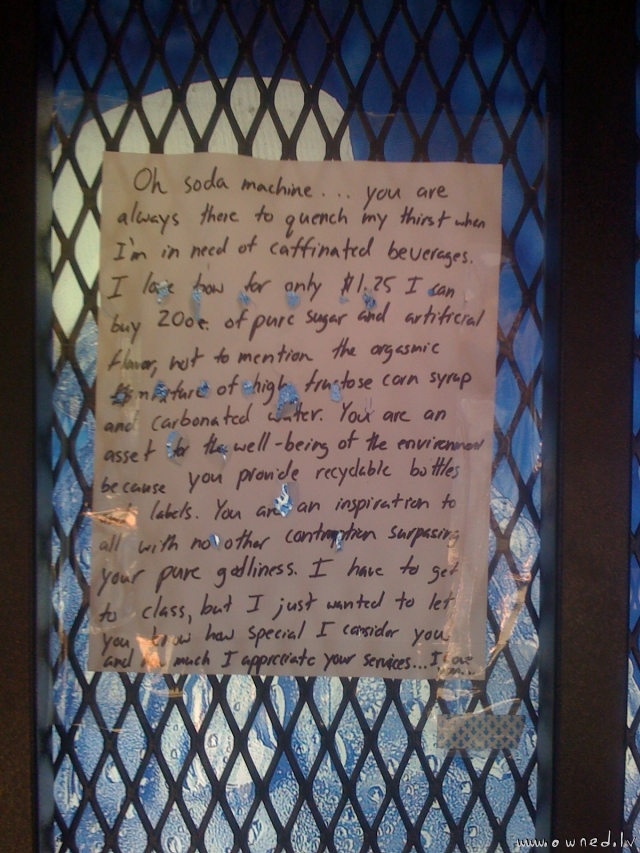 Oh soda machine... you are
always there to quench my thirst when
I'm in need of caffinated beverages.
I love how for only $1.25 I can
buy 20oz. of pure sugar and artificial
flavor, not to mention the orgasmic
mixture of high fructose corn syrup
and carbonated water. You are an
asset for the well-being of the environment
because you provide recyclable bottles
labels. You are an inspiration to
all with no other contraption surpasing
your pure godliness. I have to get
to class, but I just wanted to let
you know how special I consider you
and much I appreciate your services... I love
you...
www.owned.lv